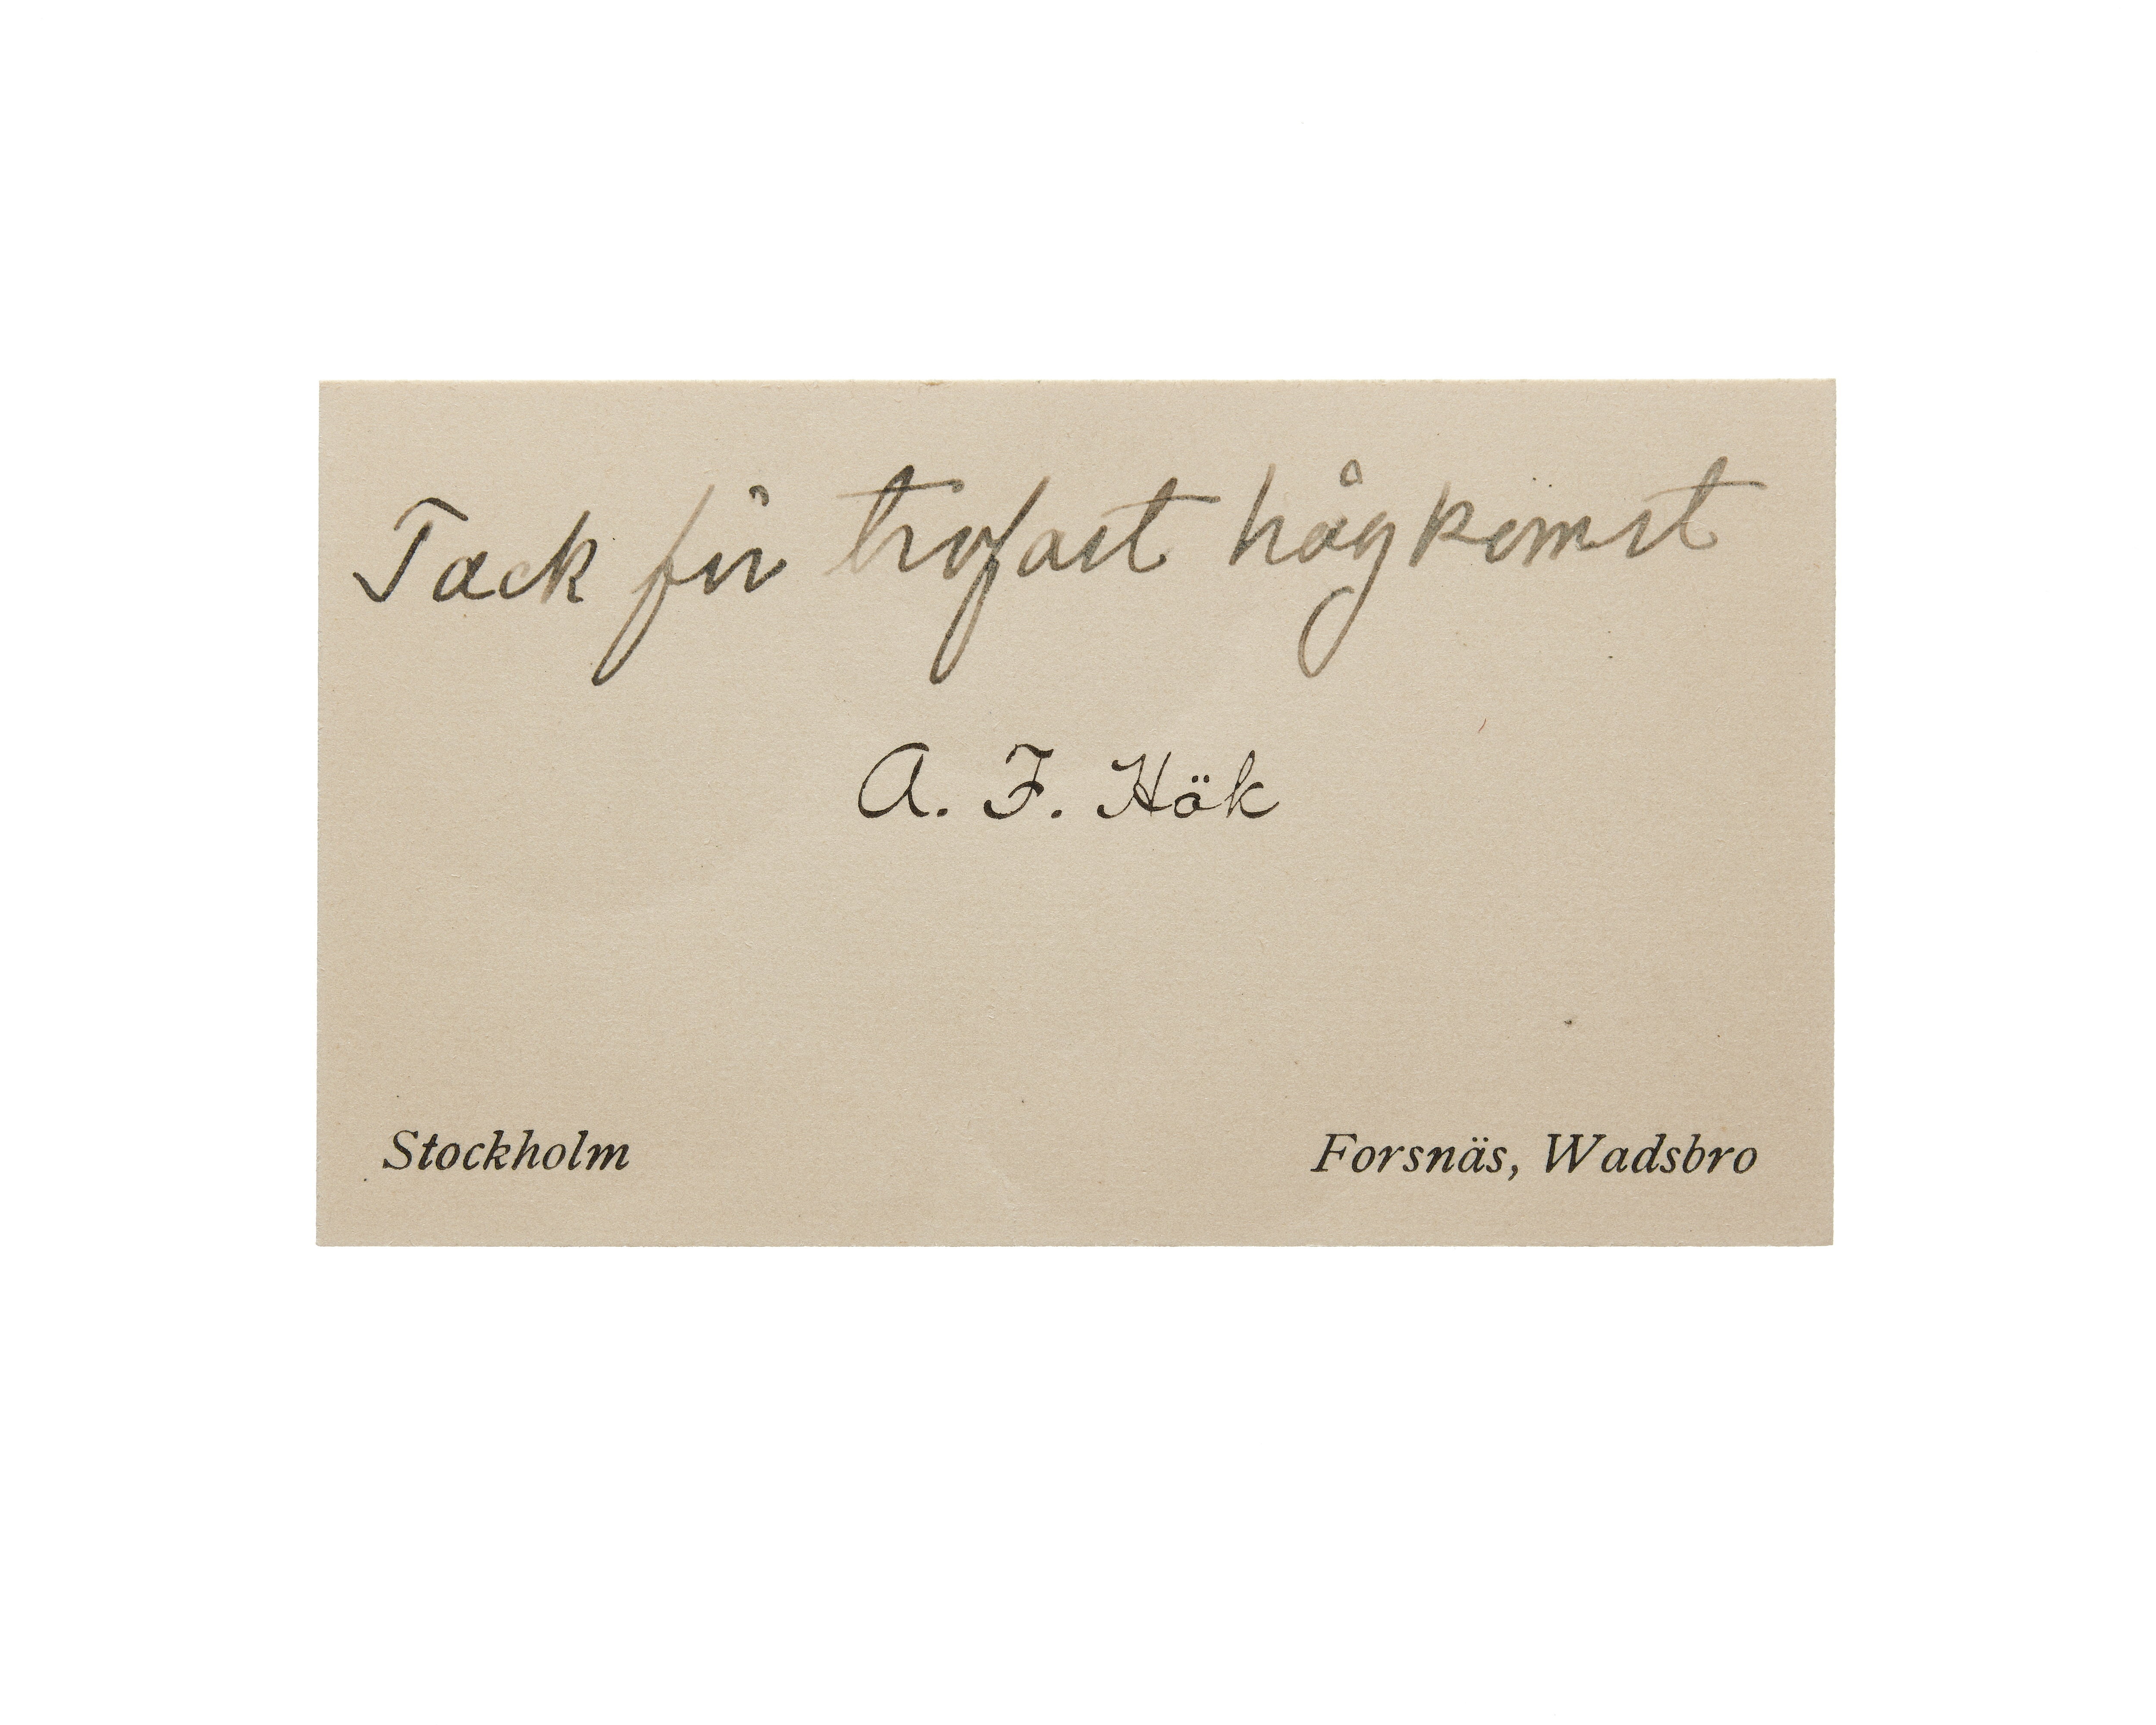 Tack för trofast hågkomst
A. F. Hök
Stockholm
Forsnäs, Wadsbro